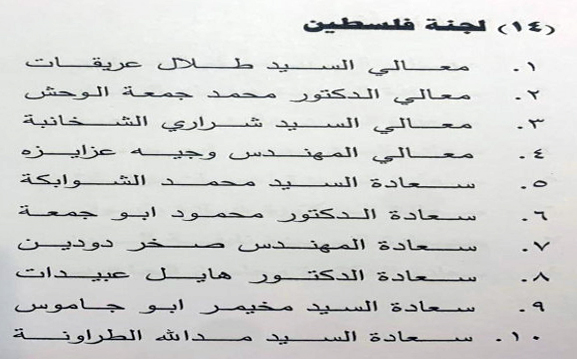 (١٤) لجنة فلسطين
١. معالي السيد طلال عريقات
٢. معالي الدكتور محمد جمعة الوحش
٣. معالي السيد شراري الشخانبة
٤. معالي المهندس وجيه عزايزه
٥. سعادة السيد محمد الشوابكة
٦. سعادة الدكتور محمود ابو جمعة
٧. سعادة المهندس صخر دودين
٨. سعادة الدكتور هايل عبيدات
٩. سعادة السيد مخيمر ابو جاموس
١٠. سعادة السيد مدالله الطراونة